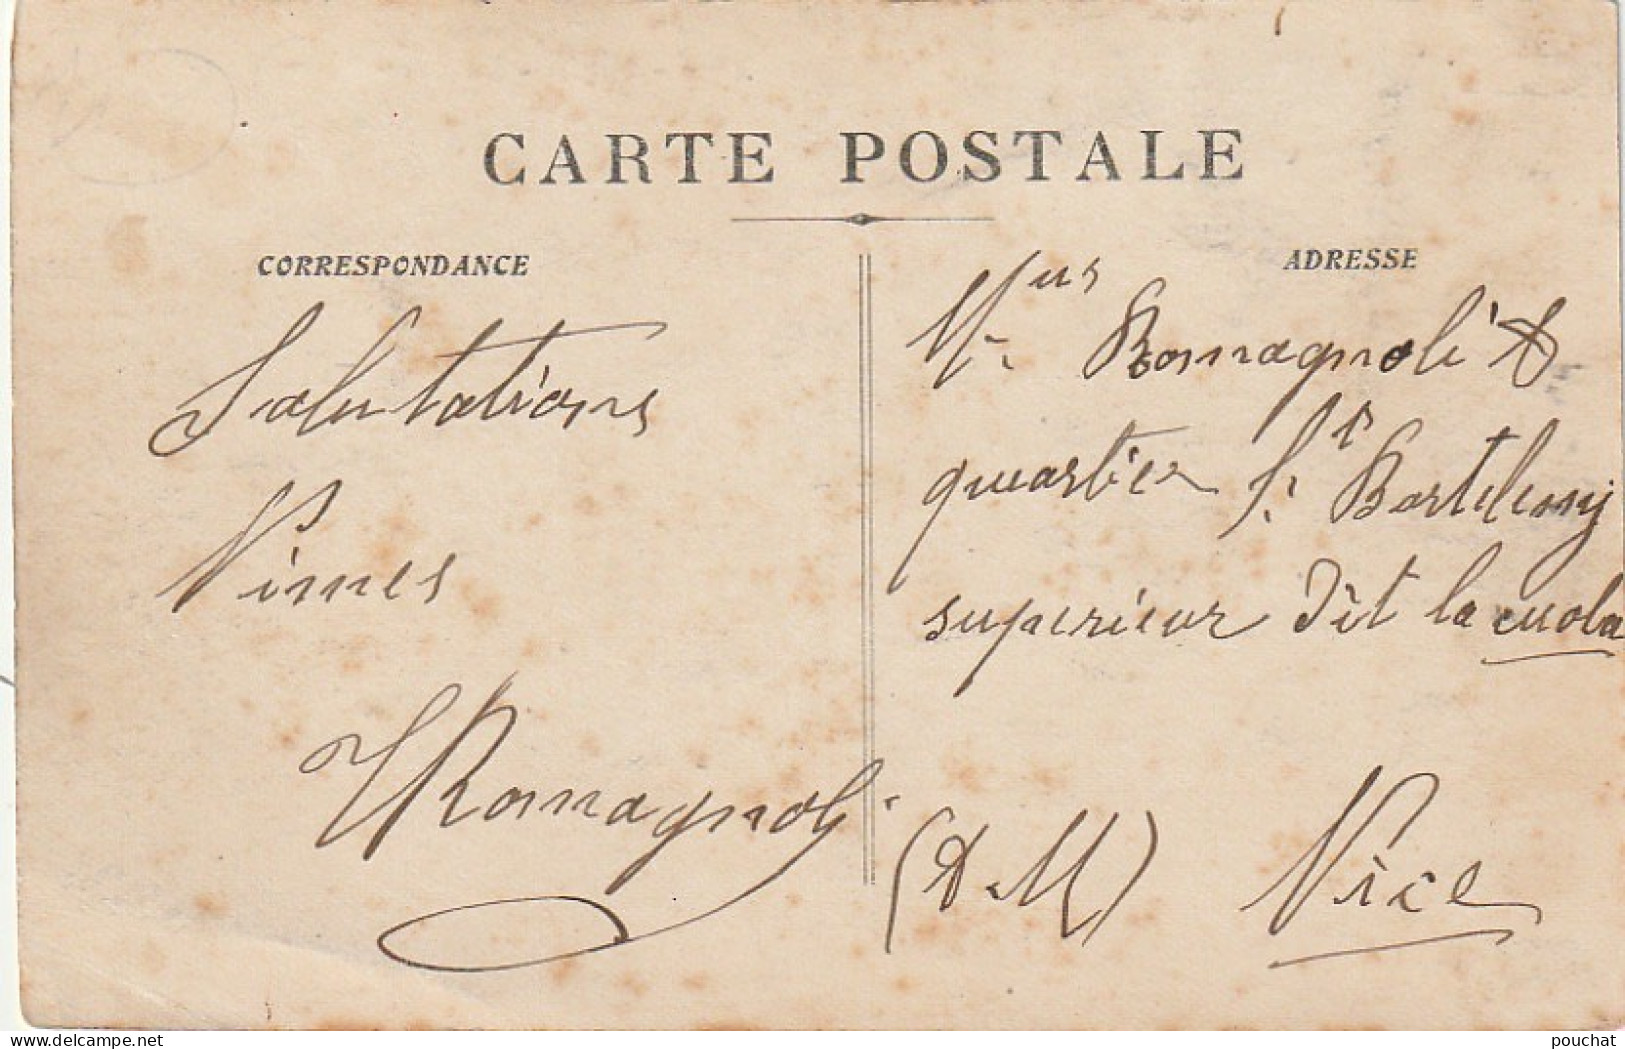 CARTE POSTALE
CORRESPONDANCE
Salutations
Nimes
Romagnoli
ADRESSE
Romagnoli
quartier St Bartelemy
superieur Dit la
(A. M) Nice
www.delcampe.net
pouchat